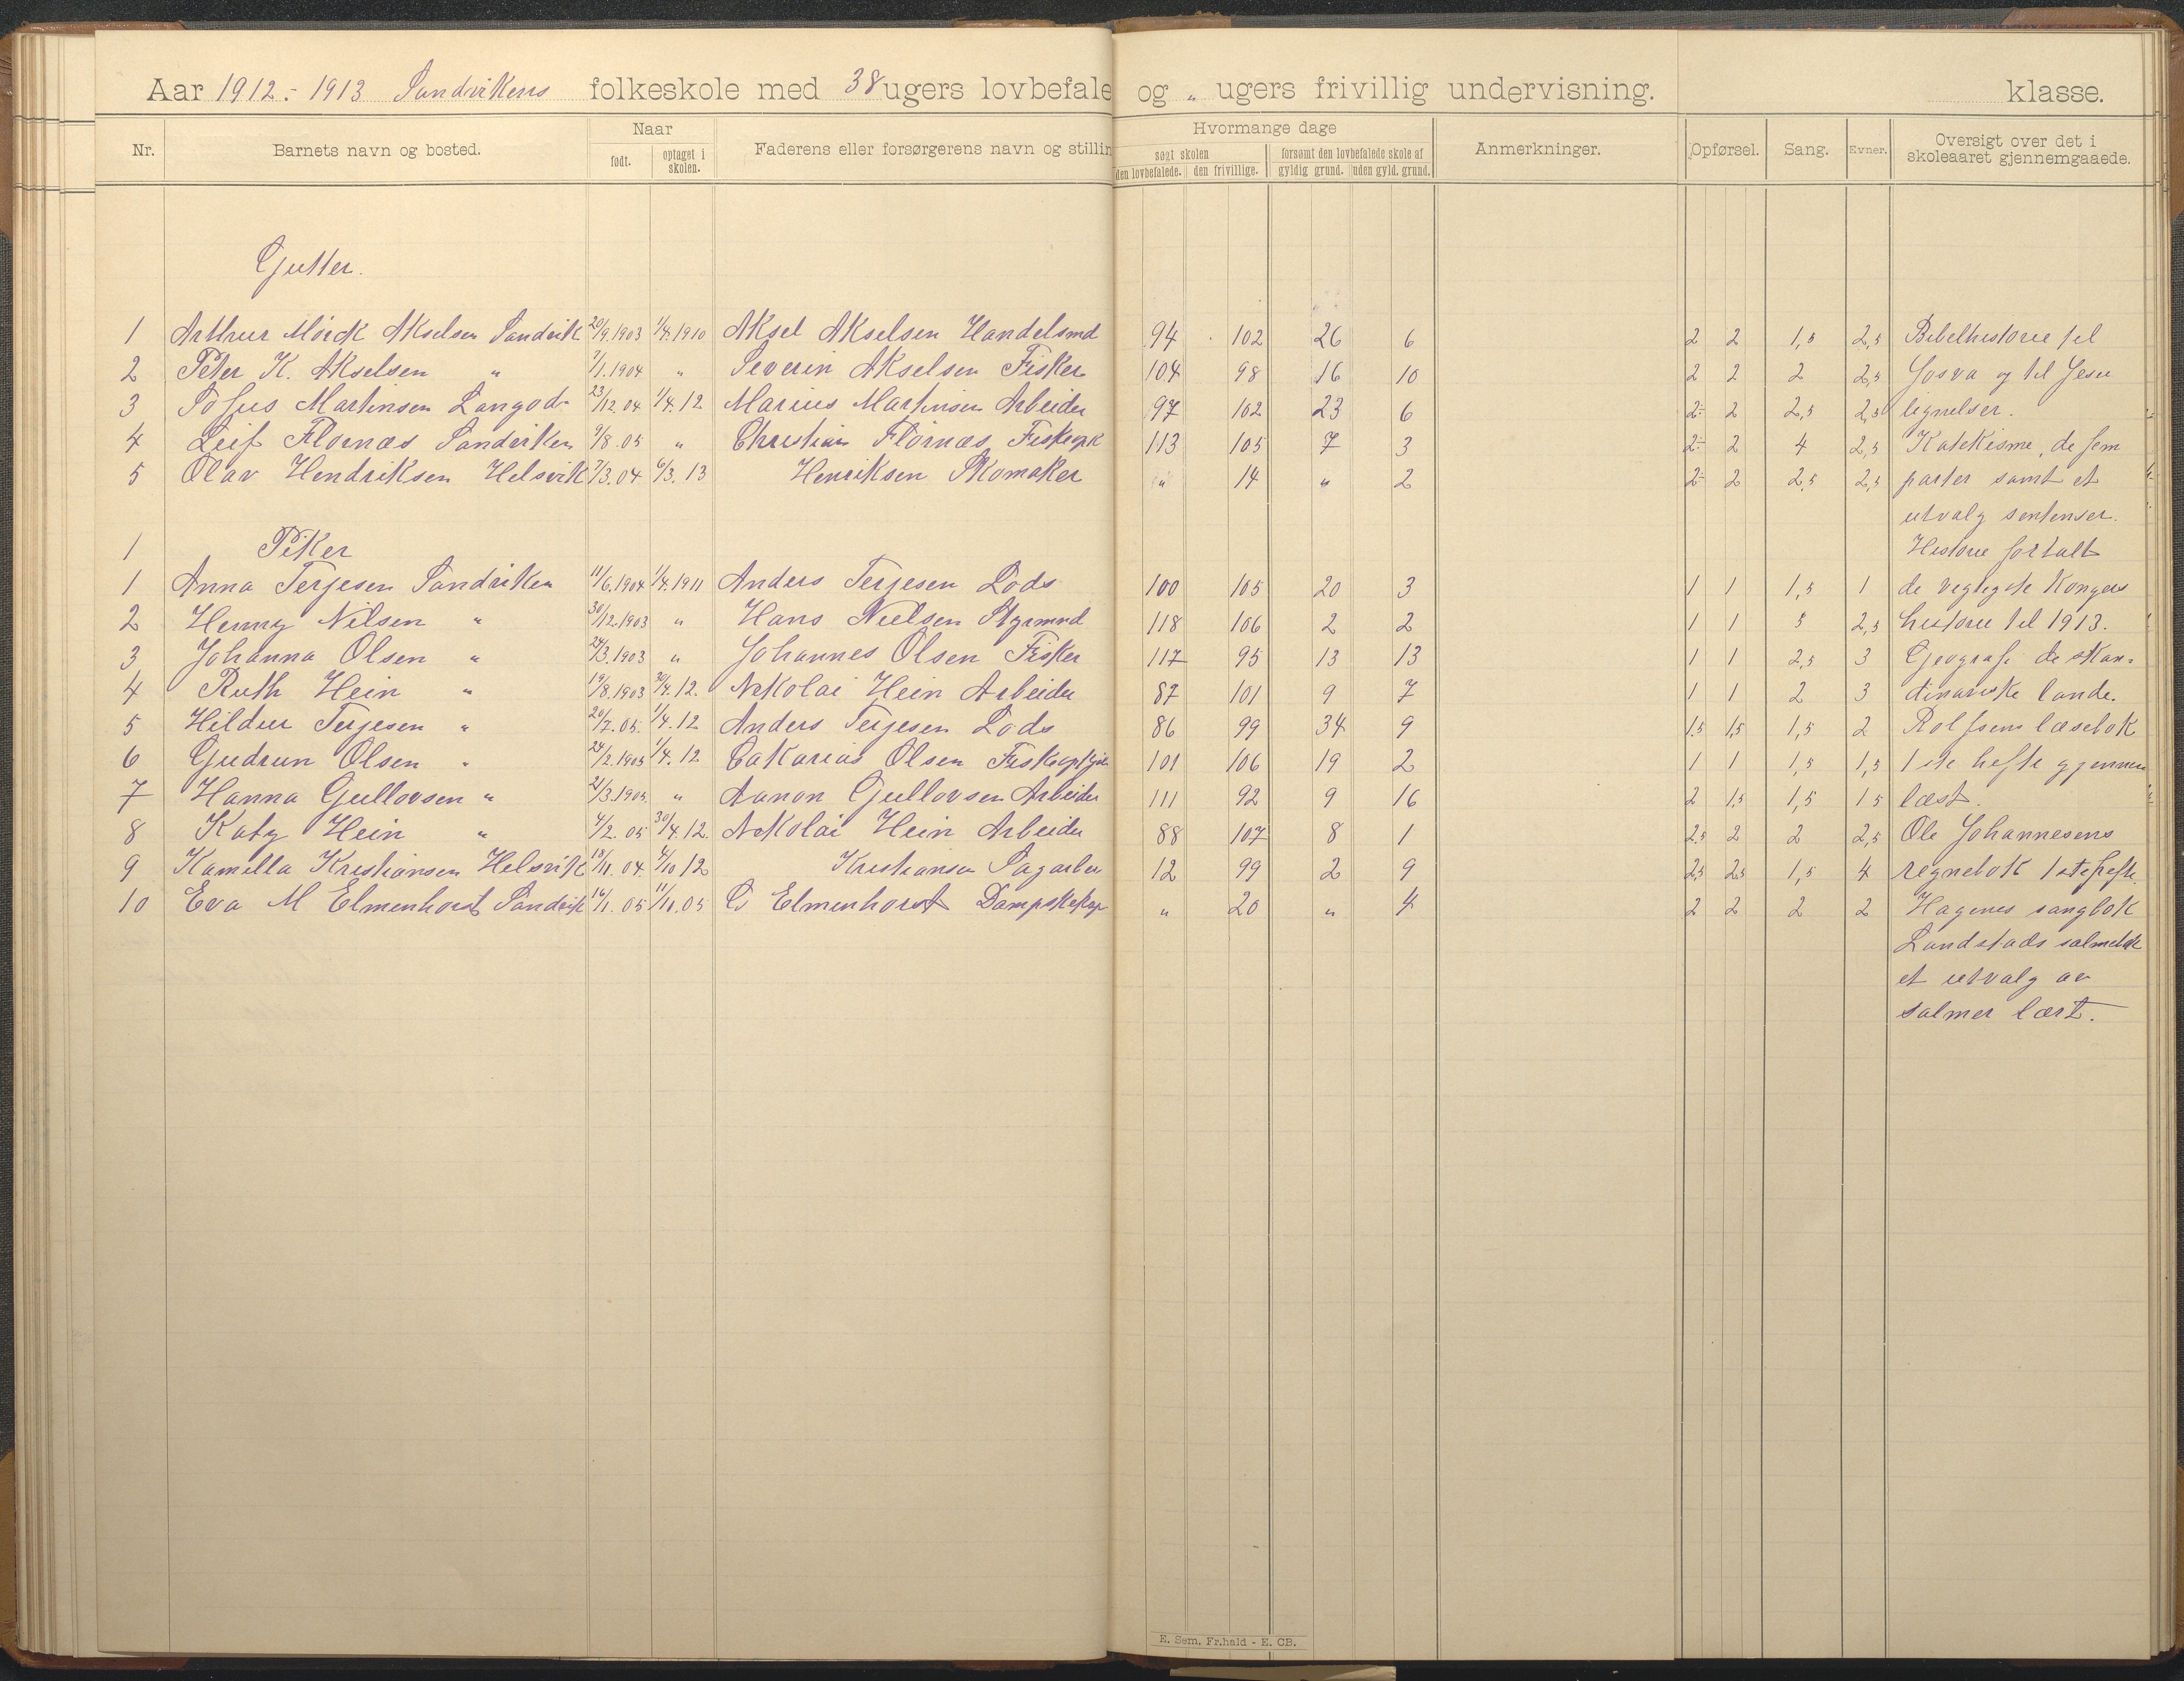 Aar 1912-1913 Sandvikens folkeskole med 38 ugers lovbefale og " ugers frivillig undervisning. klasse.
Nr. Barnets navn og bosted. Naar født. optaget i skolen. Faderens eller forsørgerens navn og stillin Hvormange dage søgt skolen den lovbefalede. den frivillige. forsømt den lovbefalede skole af gyldig grund. uden gyld. grund. Anmerkninger. Opførsel. Sang. Evner. Oversigt over det i skoleaaret gjennemgaaede.
Gutter.
1 Arthur Mörck Akselsen Sandvik 20/9.1903 1/4.1910 Aksel Akselsen Handelsmd 94 102 26 6 2 2 1,5 2,5 Bibelhistorie til
2 Peter K. Akselsen " 7/1.1904 " Severin Akselsen Fisker 104 98 16 10 2 2 2 2,5 Josva og til Jesu
3 Tofus Martinsen Langod- 23/12.04 1/4.12 Marius Martinsen Arbeider 97 102 23 6 2- 2 2,5 2,5 lignelser.
4 Leif Flörnæs Sandviken 9/8.05 " Christian Flörnæs, Fiskeopk 113 105 7 3 2- 2 4 2,5 Katekisme, de fem
5 Olav Hendriksen Helsvik 7/3.04 6/3.13 Henriksen Skomaker " 14 " 2 2- 2 2,5 2,5 parter samt et
utvalg sentenser.
1 Piker Historie fortalt
1 Anna Terjesen Sandviken 11/6.1904 1/4.1911 Anders Terjesen Lods 100 105 20 3 1 1 1,5 1 de vegtigste Kongers
2 Henny Nilsen " 30/12.1903 " Hans Nielsen Styrmnd 118 106 2 2 1 1 3 2,5 historie til 1913.
3 Johanna Olsen " 24/3.1903 " Johannes Olsen Fisker 117 95 13 13 1 1 2,5 3 Geografi de skan-
4 Ruth Hein " 19/8.1903 30/4.12. Nikolai Hein Arbeider 87 101 9 7 1 1 2 3 dinaviske lande.
5 Hildur Terjesen " 20/7.05. 1/4.12 Anders Terjesen Lods 86 99 34 9 1.5 1,5 1,5 2 Rolfsens læsebok
6 Gudrun Olsen " 24/2.1905 1/4.12 Sakarias Olsen 101 106 19 2 1 1 1,5 1,5 1ste hefte gjennem
7 Hanna Gullovsen " 21/3.1905. " Aanon Gullovsen Arbeider 111 92 9 16 2 1,5 1,5 1 5 læst.
8 Katy Hein " 4/2.05 30/4.12. Nikolai Hein Arbeider 88 107 8 1 2.5 2 2 2,5 Ole Johannesens
9 Kamilla Kristiansen Helsvik 18/11.04 4/10 12 Kristiansen Sagarbei 12 99 2 9 2,5 2,5 1,5 4 regnebok 1stehefte.
10 Eva M Elmenhorst Sandvik 16/1.05 11/11.05 C. Elmenhorst Dampskskap " 20 " 4 2 2 2 2 Hagenes sangbok
Landstads salmebok
et utvalg av
salmer lært.
E. Sem, Fr.hald - E. CB.